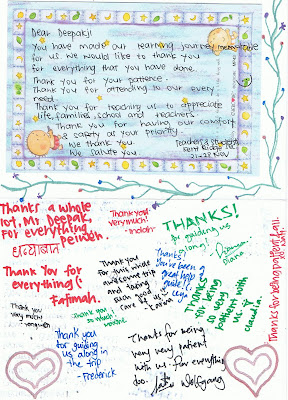 Dear Deepakji
You have made our learning journey memorable
for us we would like to thank you
for everything that you have done.
Thank you for your patience.
Thank you for attending to our every
need.
Thank you for teaching us to appreciate
life, families, school and teachers.
Thank you for having our comfort
& safety at your priority
We thank you.
We salute you
Teachers & students
Kent Ridge
21-28 Nov
Thanks a whole
lot, Mr Deepak,
for everything
धन्यवाद
Thank you
very much!
THANKS!
for guiding us
along!
Diana
Thank You for
everything (:
Fatimah.
Thank you
for this whole
awesome trip
and taking
such good
care of us
Thanks!
You've been a
great help
guide!
Thanks
for being
so very
patient
with us.
Claudia.
Thanks for being patient
Thank you
very much!
Thank you
so much
Thank you
for guiding
us along in
the trip
- Frederick
Thanks for being
very very patient
with us. for everything
too.
Wolfgang